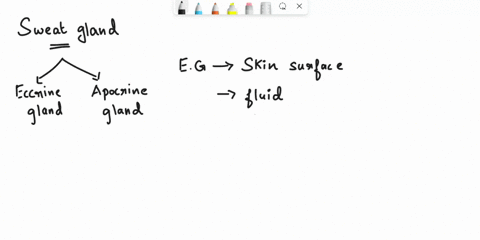 Sweat gland
Eccrine gland
Apocrine gland
E.G → Skin surface
→ fluid